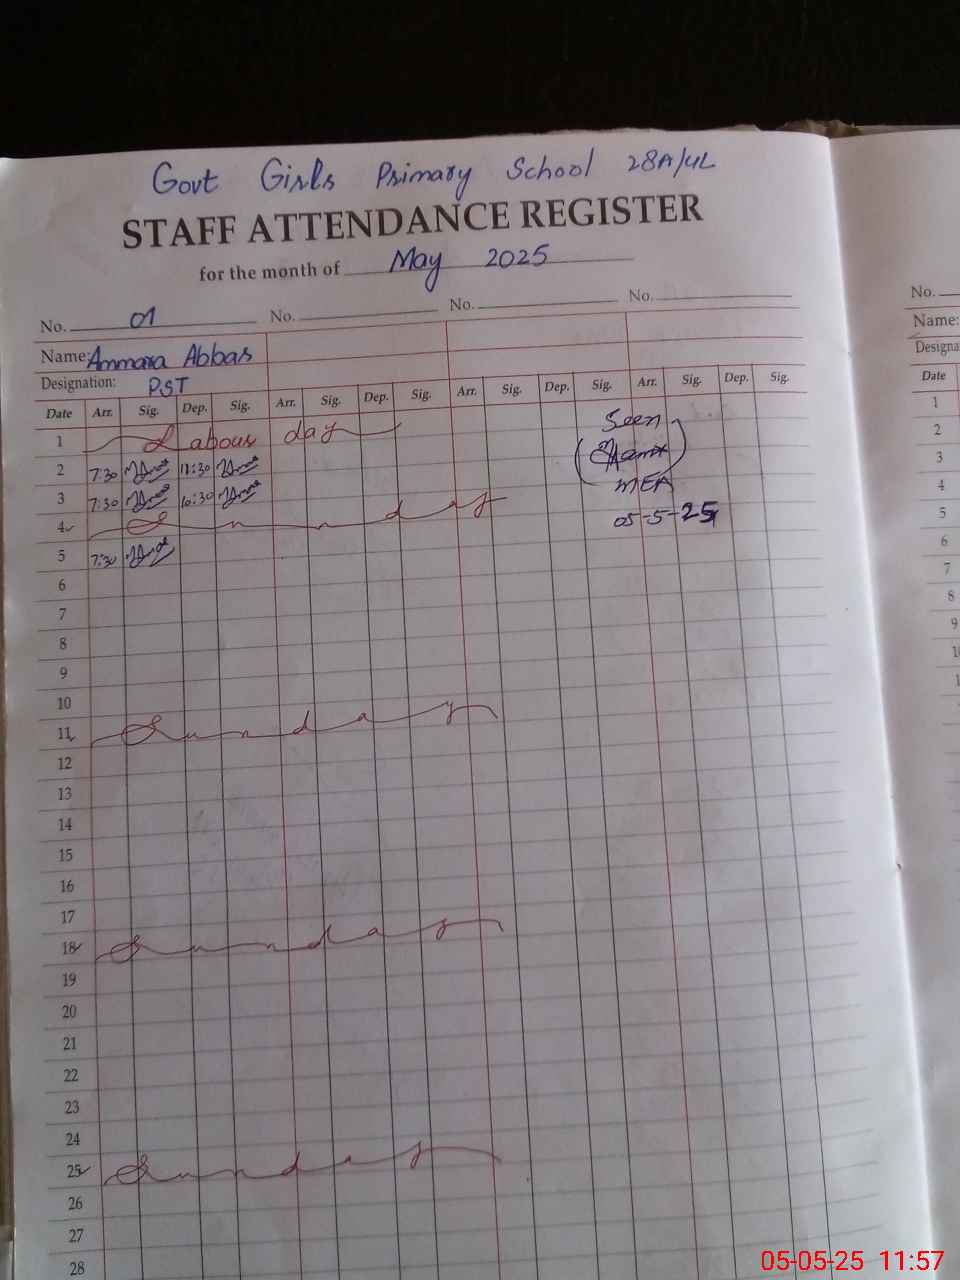 Govt Girls Primary School 28A/4L
STAFF ATTENDANCE REGISTER
for the month of May 2025
No. 01 No. No. No.
Name: Ammara Abbas
Designation: PST
Date Arr. Sig. Dep. Sig. Arr. Sig. Dep. Sig. Arr. Sig. Dep. Sig. Arr. Sig. Dep. Sig.
1 Labour day
2 7:30
3 7:30 10:30
4 Sunday
5 7:30
6
7
8
9
10
11 Sunday
12
13
14
15
16
17
18 Sunday
19
20
21
22
23
24
25 Sunday
26
27
28
Seen
MEA
05-5-25
No.
Name:
Designa
Date
1
2
3
4
5
6
7
8
9
05-05-25 11:57